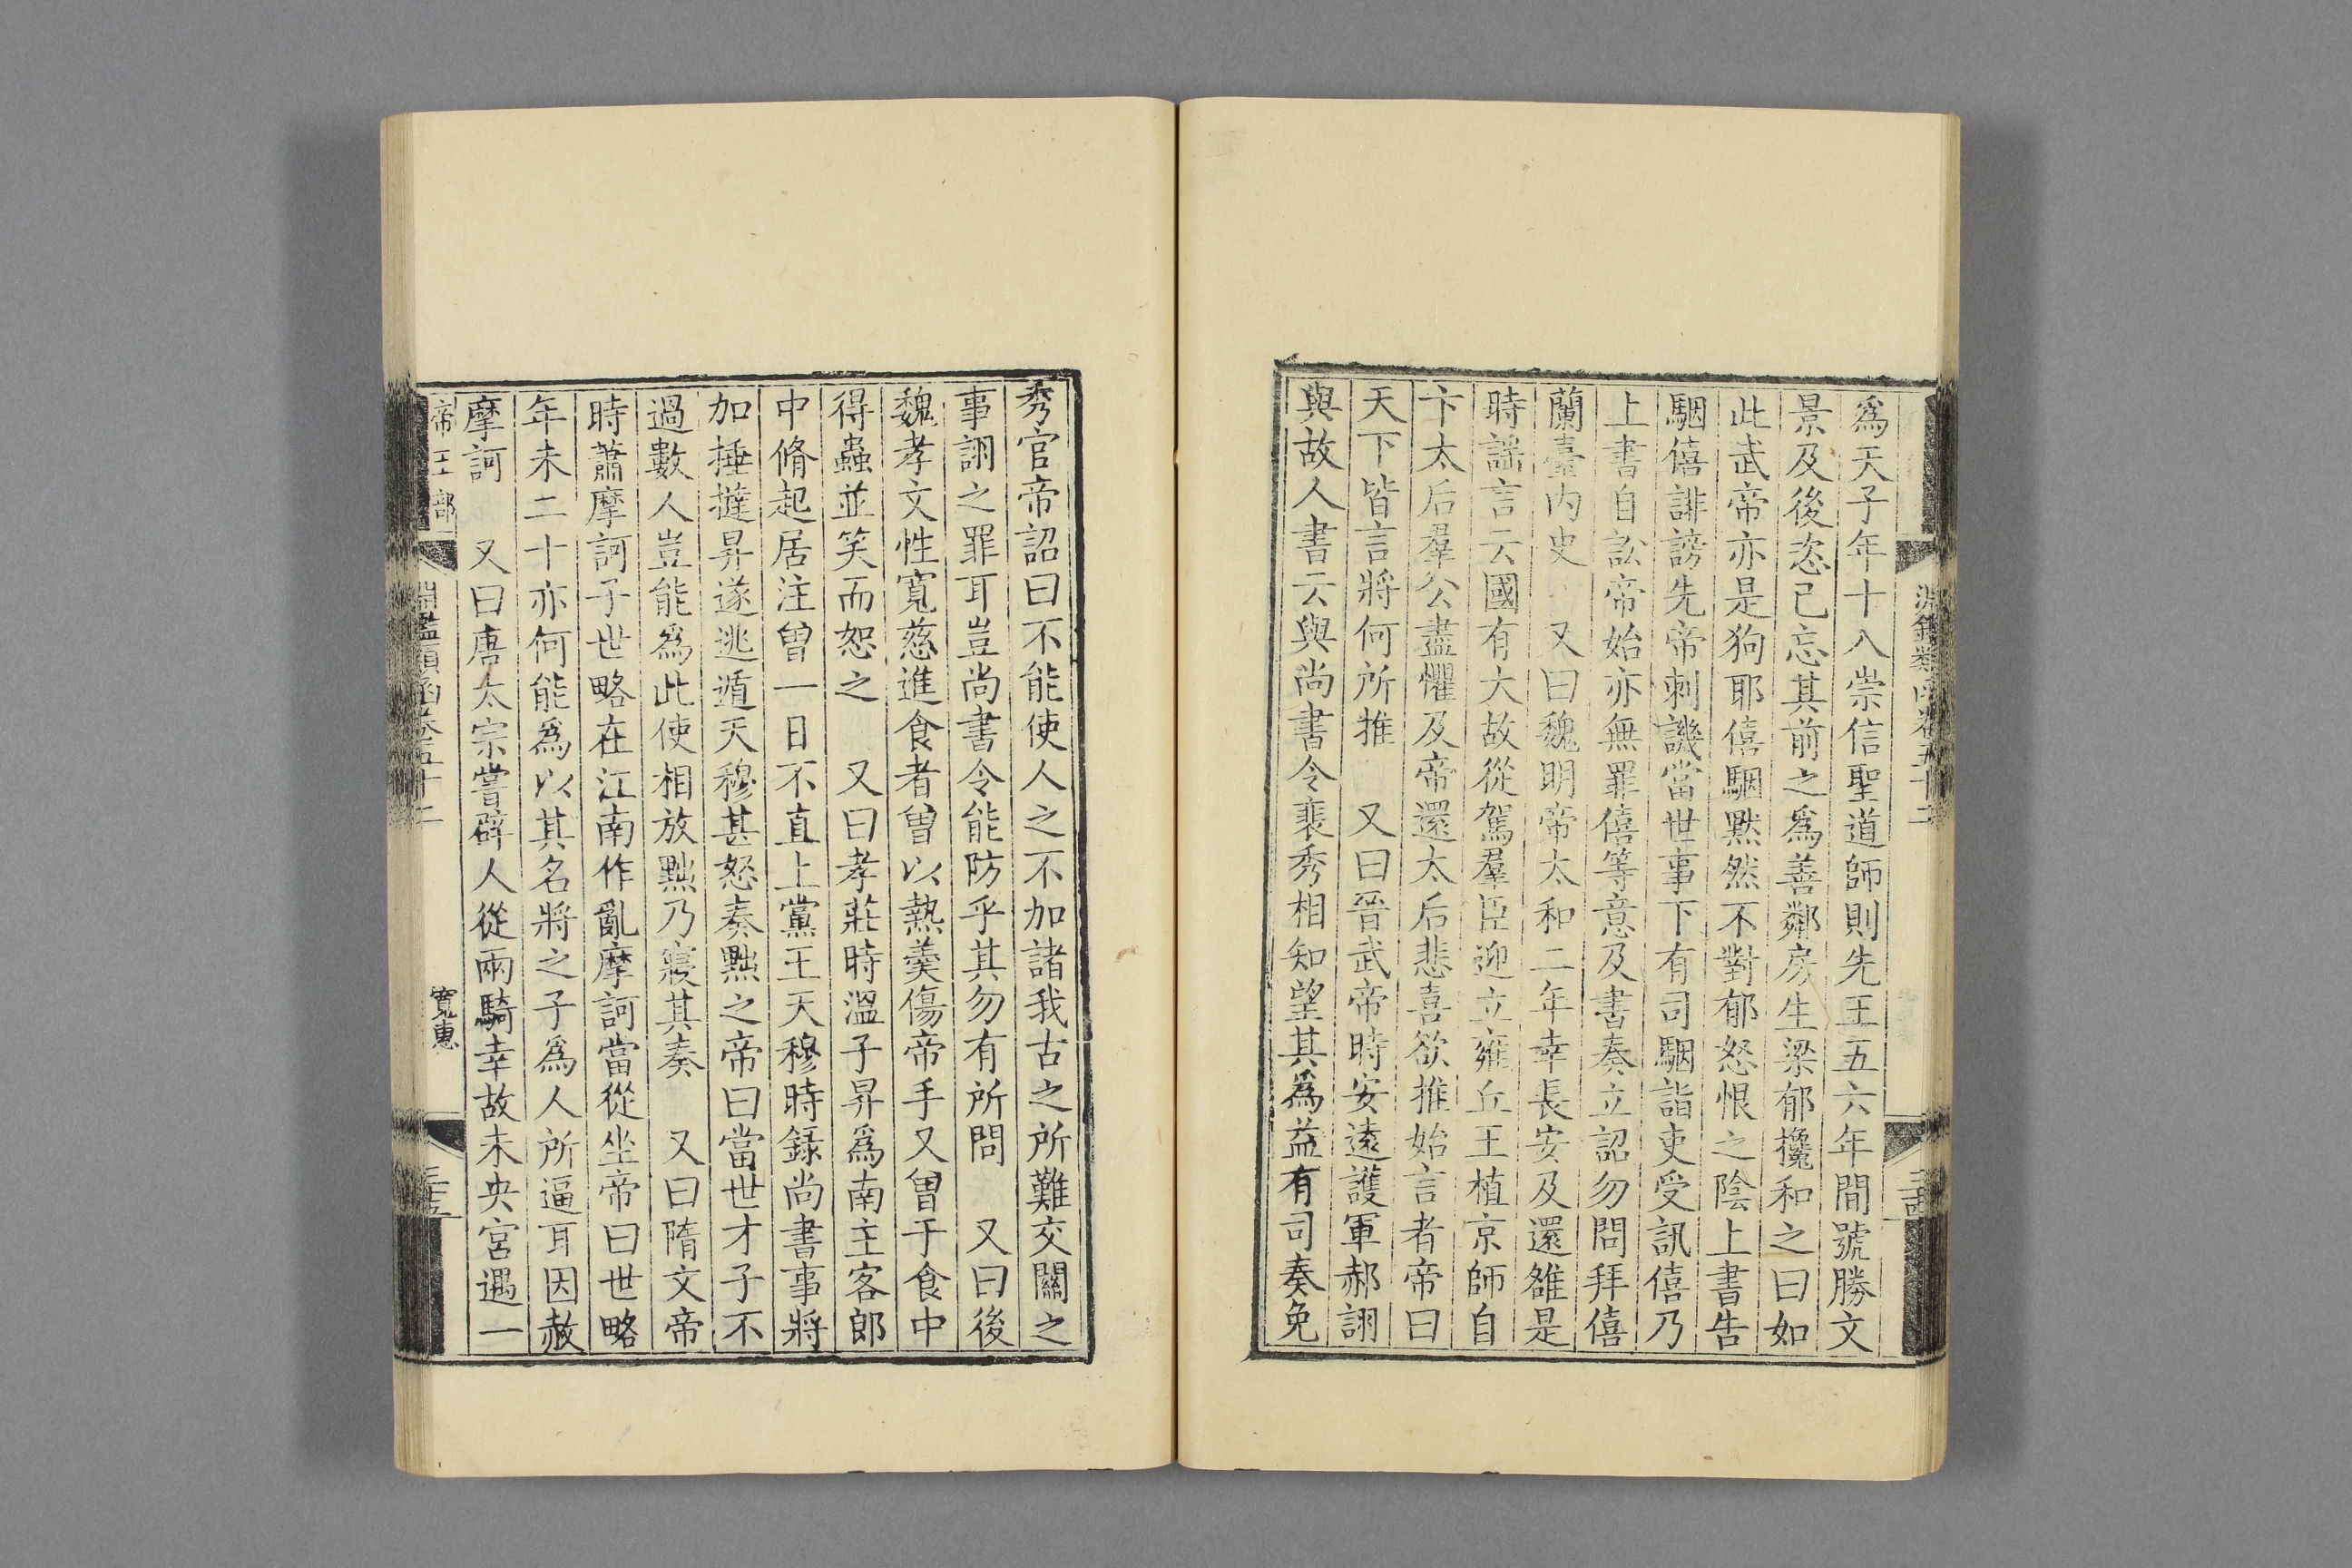 爲天子年十八崇信聖道師則先王五六年間號勝文
景及後恣己忘其前之爲善鄰房生梁郁攙和之曰如
此武帝亦是狗耶僖駰默然不對郁怒恨之陰上書告
駰僖誹謗先帝刺譏當世事下有司駰詣吏受訊僖乃
上書自訟帝始亦無罪僖等意及書奏立詔勿問拜僖
蘭臺内史　又曰魏明帝太和二年幸長安及還雒是
時謡言云國有大故從駕羣臣迎立雍丘王植京師自
卞太后羣公盡懼及帝還太后悲喜欲推始言者帝曰
天下皆言將何所推　又曰晉武帝時安遠護軍郝詡
與故人書云與尚書令裴秀相知望其爲益有司奏免
秀官帝詔曰不能使人之不加諸我古之所難交關之
事詡之罪耳豈尚書令能防乎其勿有所問　又曰後
魏孝文性寬慈進食者曾以熱羹傷帝手又曾于食中
得蟲並笑而恕之　又曰孝莊時溫子昇爲南主客郎
中脩起居注曾一日不直上黨王天穆時錄尚書事將
加捶撻昇遂逃遁天穆甚怒奏㸃之帝曰當世才子不
過數人豈能爲此使相放㸃乃寢其奏　又曰隋文帝
時蕭摩訶子世略在江南作亂摩訶當從坐帝曰世略
年未二十亦何能爲以其名將之子爲人所逼耳因赦
摩訶　又曰唐太宗嘗辟人從兩騎幸故未央宮遇一
帝王部　淵鑑類函卷五十二　寬惠　三十五